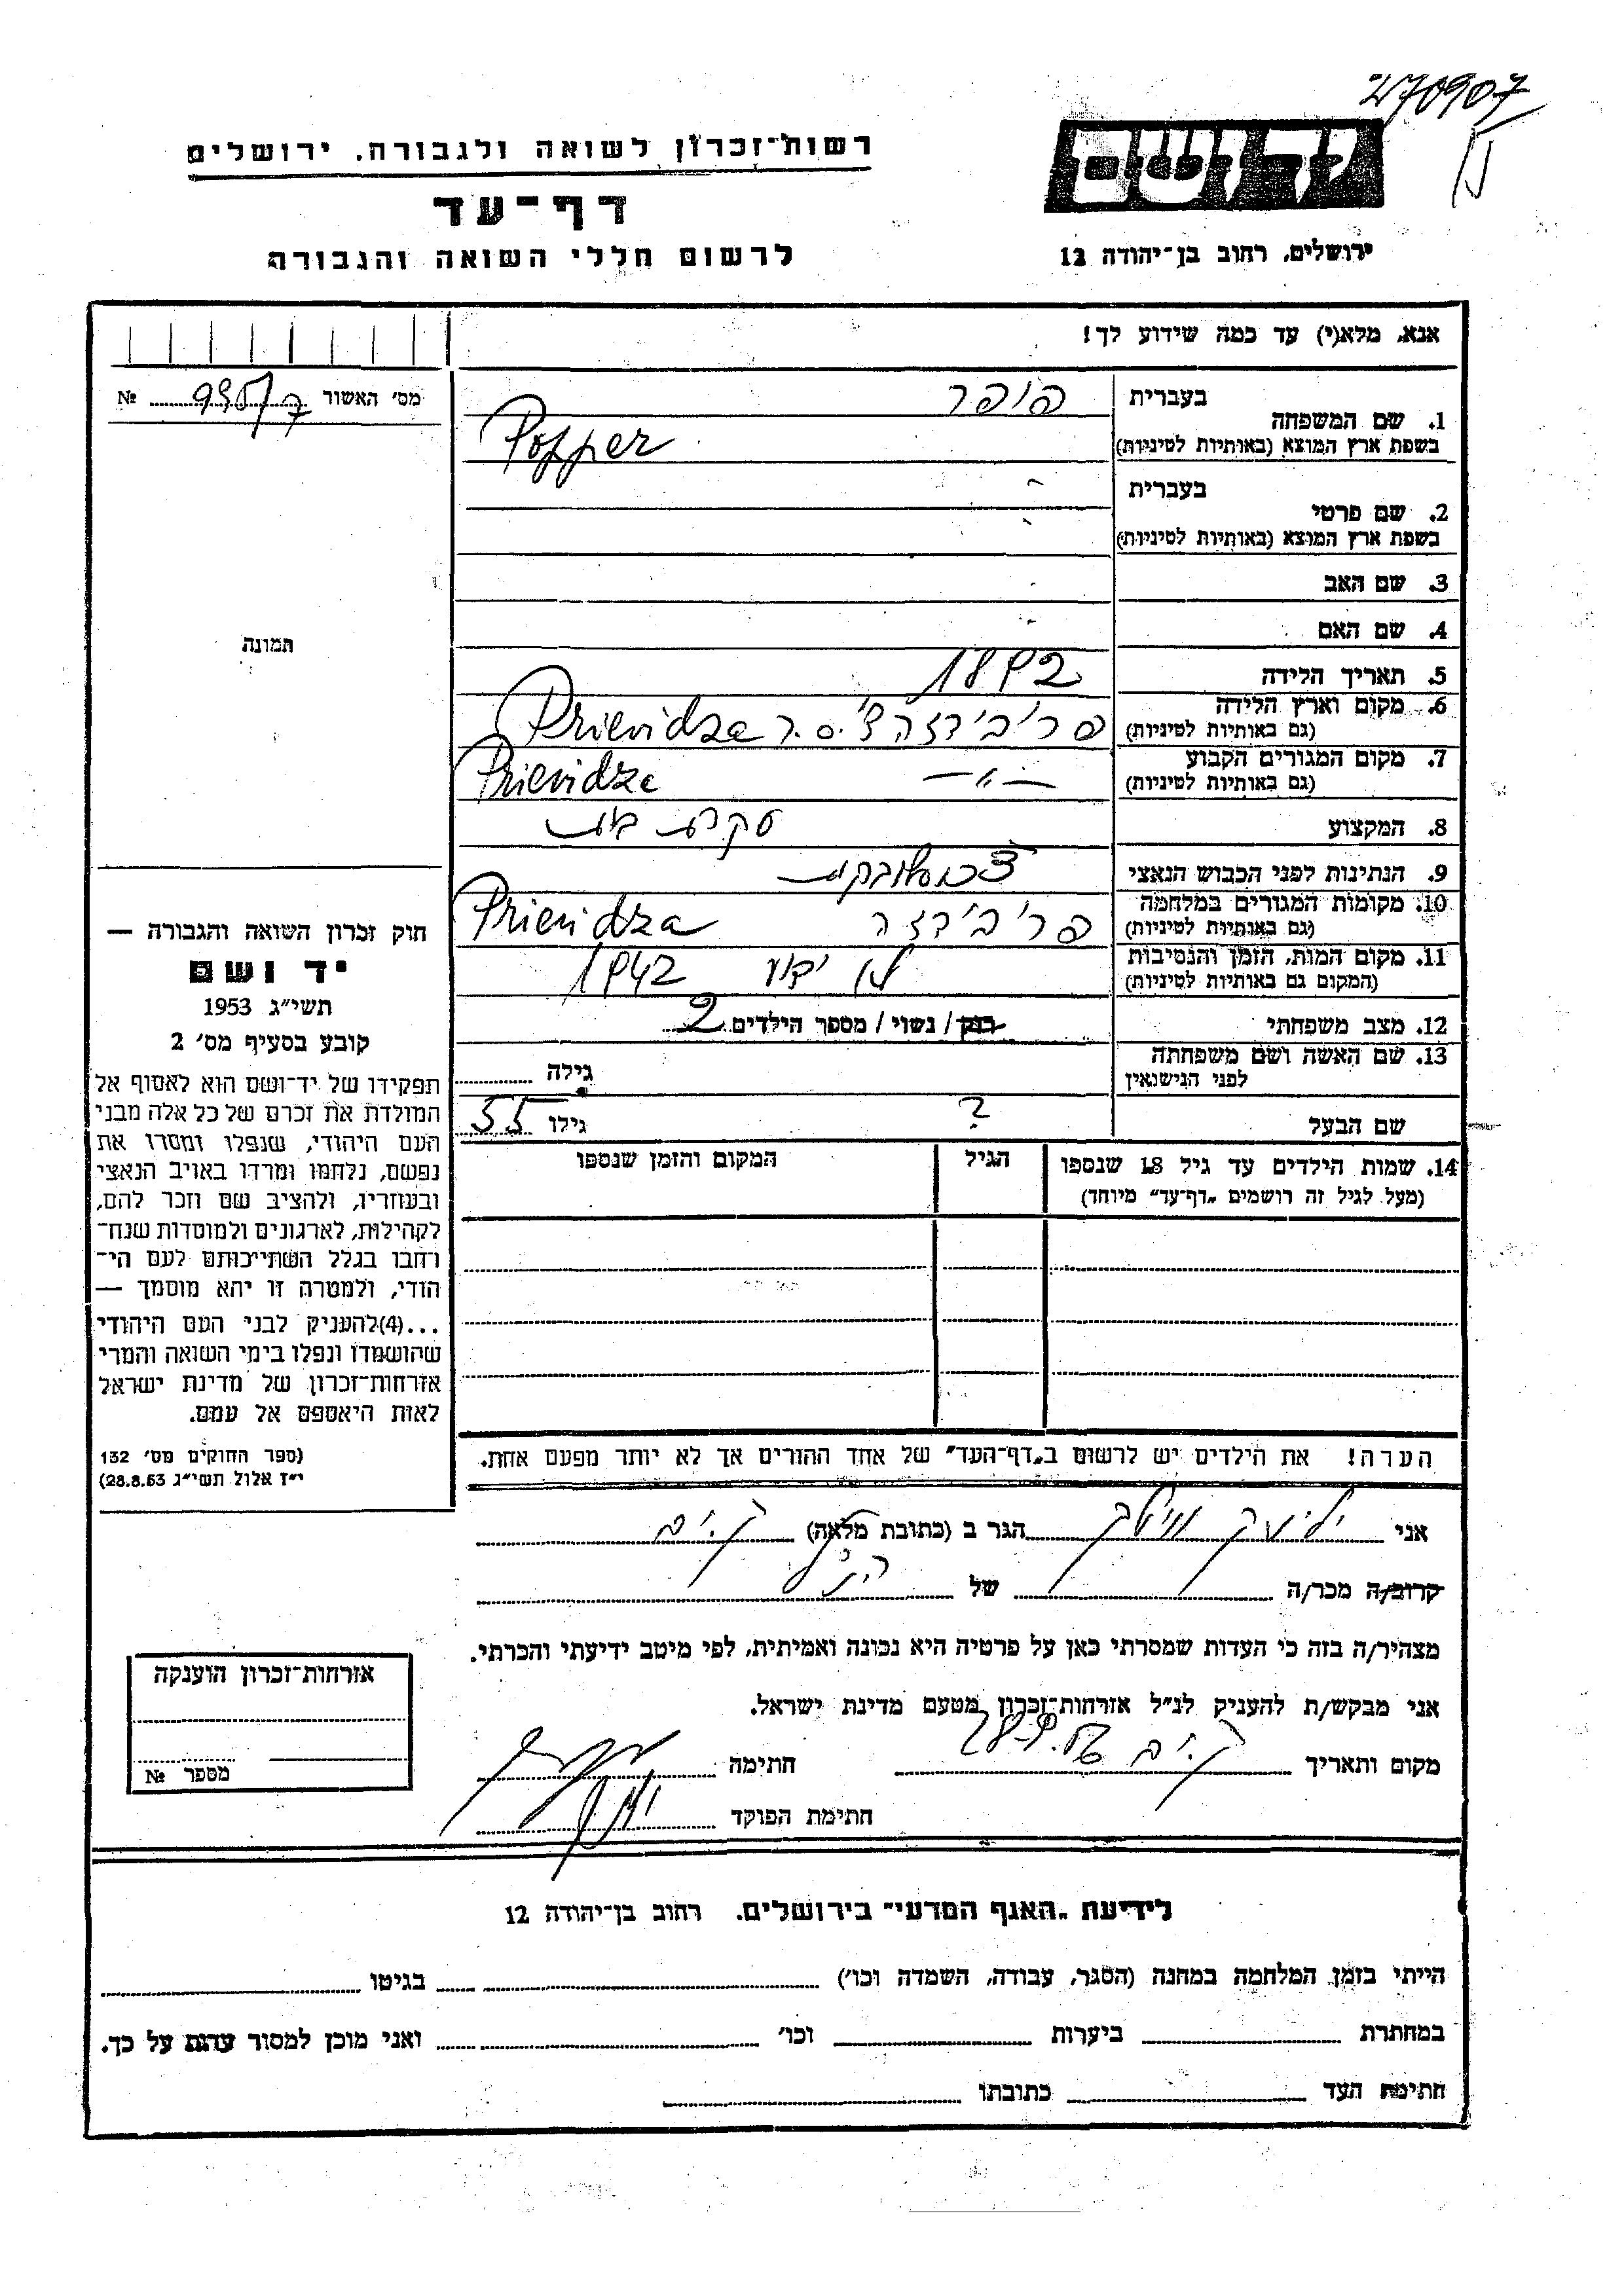 270907
יד ושם
רשות־זכרון לשואה ולגבורה, ירושלים
דף־עד
לרשום חללי השואה והגבורה
ירושלים, רחוב בן־יהודה 12
אנא, מלא(י) עד כמה שידוע לך!
מס׳ האשור № 
1. שם המשפחה בעברית פופר
בשפת ארץ המוצא (באותיות לטיניות) Popper
2. שם פרטי בעברית
בשפת ארץ המוצא (באותיות לטיניות)
3. שם האב
4. שם האם
5. תאריך הלידה 1892
6. מקום וארץ הלידה
(גם באותיות לטיניות) פריבידזה צ׳.ס.ר Prievidza
7. מקום המגורים הקבוע
(גם באותיות לטיניות) –״– Prievidza
8. המקצוע עקרת בית
9. הנתינות לפני הכבוש הנאצי צ׳כוסלובקית
10. מקומות המגורים במלחמה
(גם באותיות לטיניות) פריבידזה Prievidza
11. מקום המות, הזמן והנסיבות
(המקום גם באותיות לטיניות) לא ידוע 1942
12. מצב משפחתי רווק / נשוי / מספר הילדים 2
13. שם האשה ושם משפחתה
לפני הנישואין גילה
שם הבעל ? גילו 55
14. שמות הילדים עד גיל 18 שנספו הגיל המקום והזמן שנספו
(מעל לגיל זה רושמים „דף־עד״ מיוחד)
תמונה
חוק זכרון השואה והגבורה —
יד ושם
תשי״ג 1953
קובע בסעיף מס׳ 2
תפקידו של יד־ושם הוא לאסוף אל
המולדת את זכרם של כל אלה מבני
העם היהודי, שנפלו ומסרו את
נפשם, נלחמו ומרדו באויב הנאצי
ובעוזריו, ולהציב שם וזכר להם,
לקהילות, לארגונים ולמוסדות שנח־
רבו בגלל השתייכותם לעם הי־
הודי, ולמטרה זו יהא מוסמך —
...(4)להעניק לבני העם היהודי
שהושמדו ונפלו בימי השואה והמרי
אזרחות־זכרון של מדינת ישראל
לאות היאספם אל עמם.
(ספר החוקים מס׳ 132
י״ז אלול תשי״ג 28.8.53)
הערה! את הילדים יש לרשום ב„דף־העד״ של אחד ההורים אך לא יותר מפעם אחת.
אני הגר ב (כתובת מלאה) ק. ים
קרוב/ה מכר/ה של
מצהיר/ה בזה כי העדות שמסרתי כאן על פרטיה היא נכונה ואמיתית, לפי מיטב ידיעתי והכרתי.
אני מבקש/ת להעניק לנ״ל אזרחות־זכרון מטעם מדינת ישראל.
מקום ותאריך ק. ים חתימה
חתימת הפוקד
אזרחות־זכרון הוענקה
מספר №
לידיעת „האגף המדעי״ בירושלים, רחוב בן־יהודה 12
הייתי בזמן המלחמה במחנה (הסגר, עבודה, השמדה וכו׳) בגיטו
במחתרת ביערות וכו׳ ואני מוכן למסור עדות על כך.
חתימת העד כתובתו